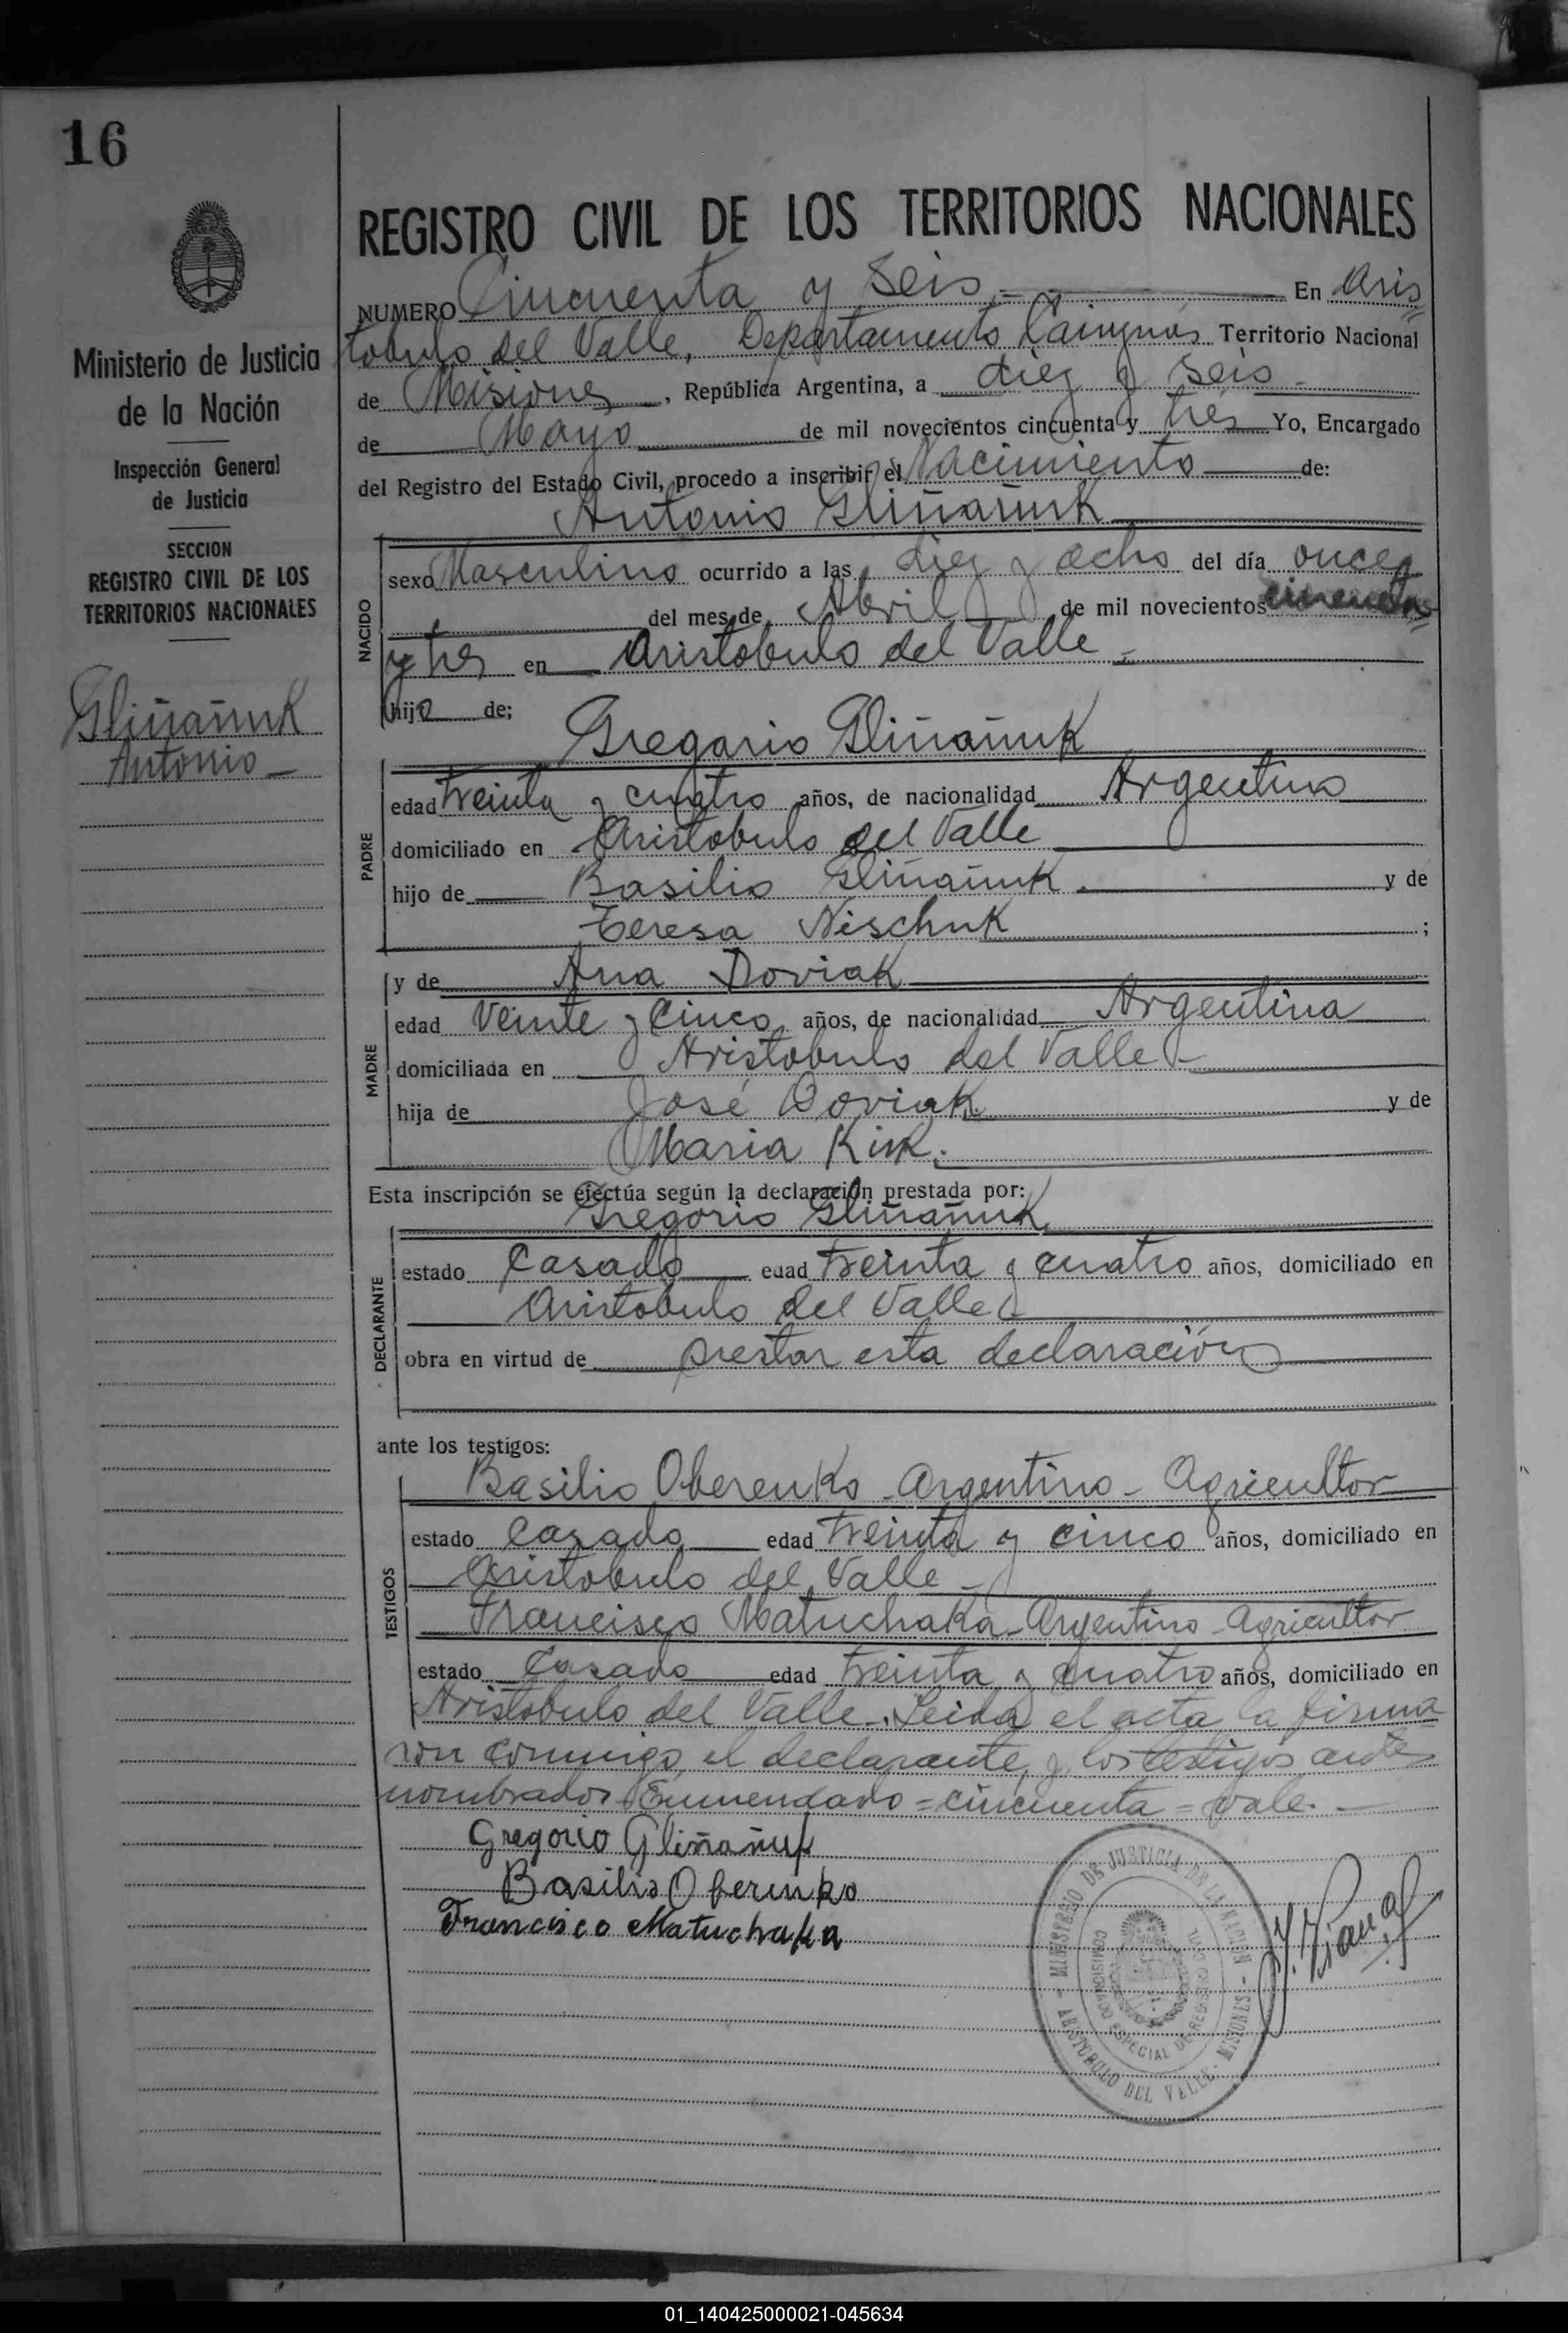 16
Ministerio de Justicia
de la Nación
Inspección General
de Justicia
SECCION
REGISTRO CIVIL DE LOS
TERRITORIOS NACIONALES
Gliñañuk
Antonio
REGISTRO CIVIL DE LOS TERRITORIOS NACIONALES
NUMERO Cincuenta y Seis En Aris
tobulo del Valle, Departamento Cainguás Territorio Nacional
de Misiones, República Argentina, a diez y seis
de Mayo de mil novecientos cincuenta y tres Yo, Encargado
del Registro del Estado Civil, procedo a inscribir el Nacimiento de:
Antonio Gliñañuk
NACIDO
sexo Masculino ocurrido a las diez y ocho del día once
del mes de Abril de mil novecientos cincuenta
y tres en Aristobulo del Valle
hijo de;
Gregorio Gliñañuk
PADRE
edad treinta y cuatro años, de nacionalidad Argentino
domiciliado en Aristobulo del Valle
hijo de Basilio Gliñañuk y de
Teresa Nischuk ;
MADRE
y de Ana Doviak
edad Veinte y Cinco años, de nacionalidad Argentina
domiciliada en Aristobulo del Valle
hija de José Doviak y de
Maria Kiuk.
Esta inscripción se efectúa según la declaración prestada por:
Gregorio Gliñañuk
DECLARANTE
estado Casado edad treinta y cuatro años, domiciliado en
Aristobulo del Valle
obra en virtud de prestar esta declaración
ante los testigos:
TESTIGOS
Basilio Oberenko - Argentino - Agricultor
estado Casado edad treinta y cinco años, domiciliado en
Aristobulo del Valle -
Francisco Matuchaka - Argentino - Agricultor
estado Casado edad treinta y cuatro años, domiciliado en
Aristobulo del Valle. Leida el acta la firma
ron conmigo el declarante y los testigos ante
nombrados Enmendado = cincuenta = Vale. -
Gregorio Gliñañuk
Basilio Oberenko
Francisco Matuchaka
MINISTERIO DE JUSTICIA DE LA NACION
COMISIONADO ESPECIAL DE REGISTRO CIVIL
ARISTOBULO DEL VALLE - MISIONES -
01_140425000021-045634